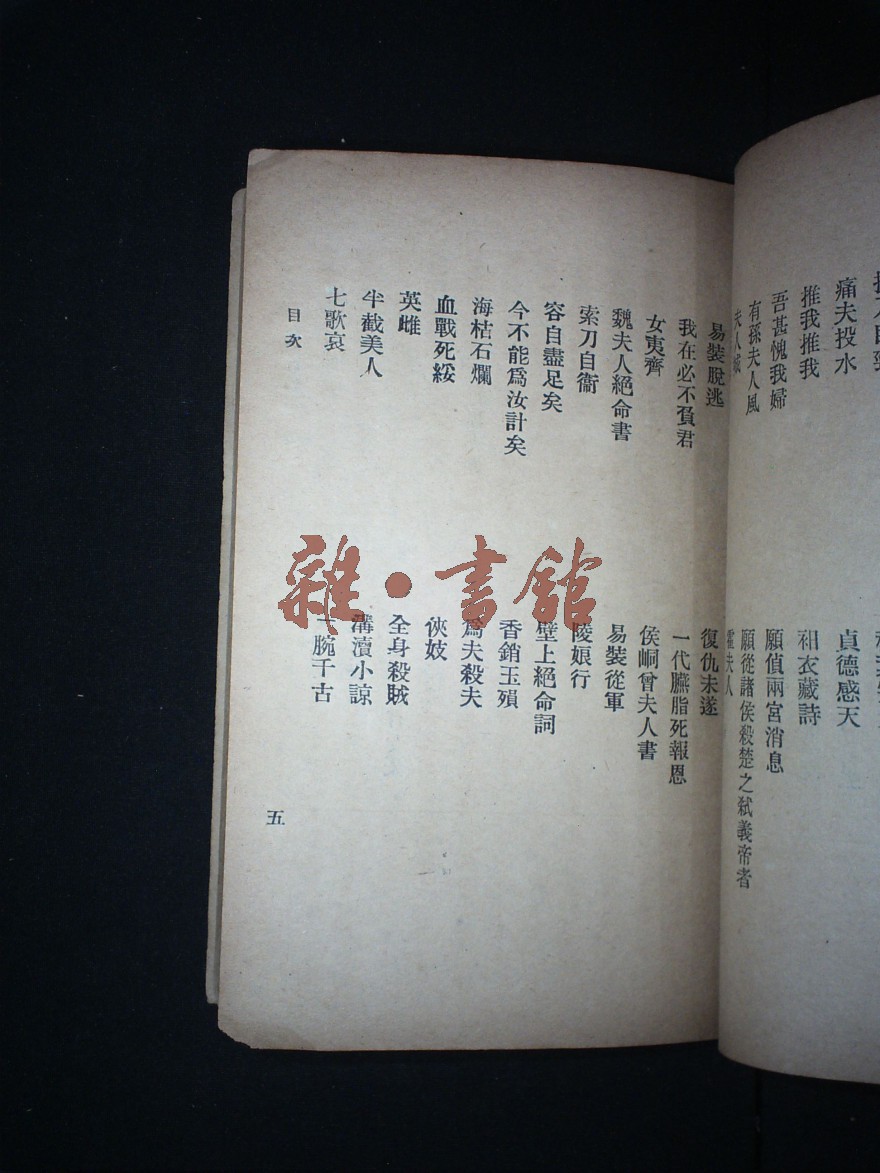 痛夫投水
貞德感天
推我推我
衵衣藏詩
吾甚愧我婦
願偵兩宮消息
有孫夫人風
願從諸侯殺楚之弒義帝者
夫人城
霍夫人
易裝脫逃
復仇未遂
我在必不負君
一代臙脂死報恩
女夷齊
侯峒曾夫人書
魏夫人絕命書
易裝從軍
索刀自衞
陵娘行
容自盡足矣
壁上絕命詞
今不能爲汝計矣
香銷玉殞
海枯石爛
爲夫殺夫
血戰死綏
俠妓
英雌
全身殺賊
半截美人
溝瀆小諒
七歌哀
一腕千古
目次
五
雜·書館